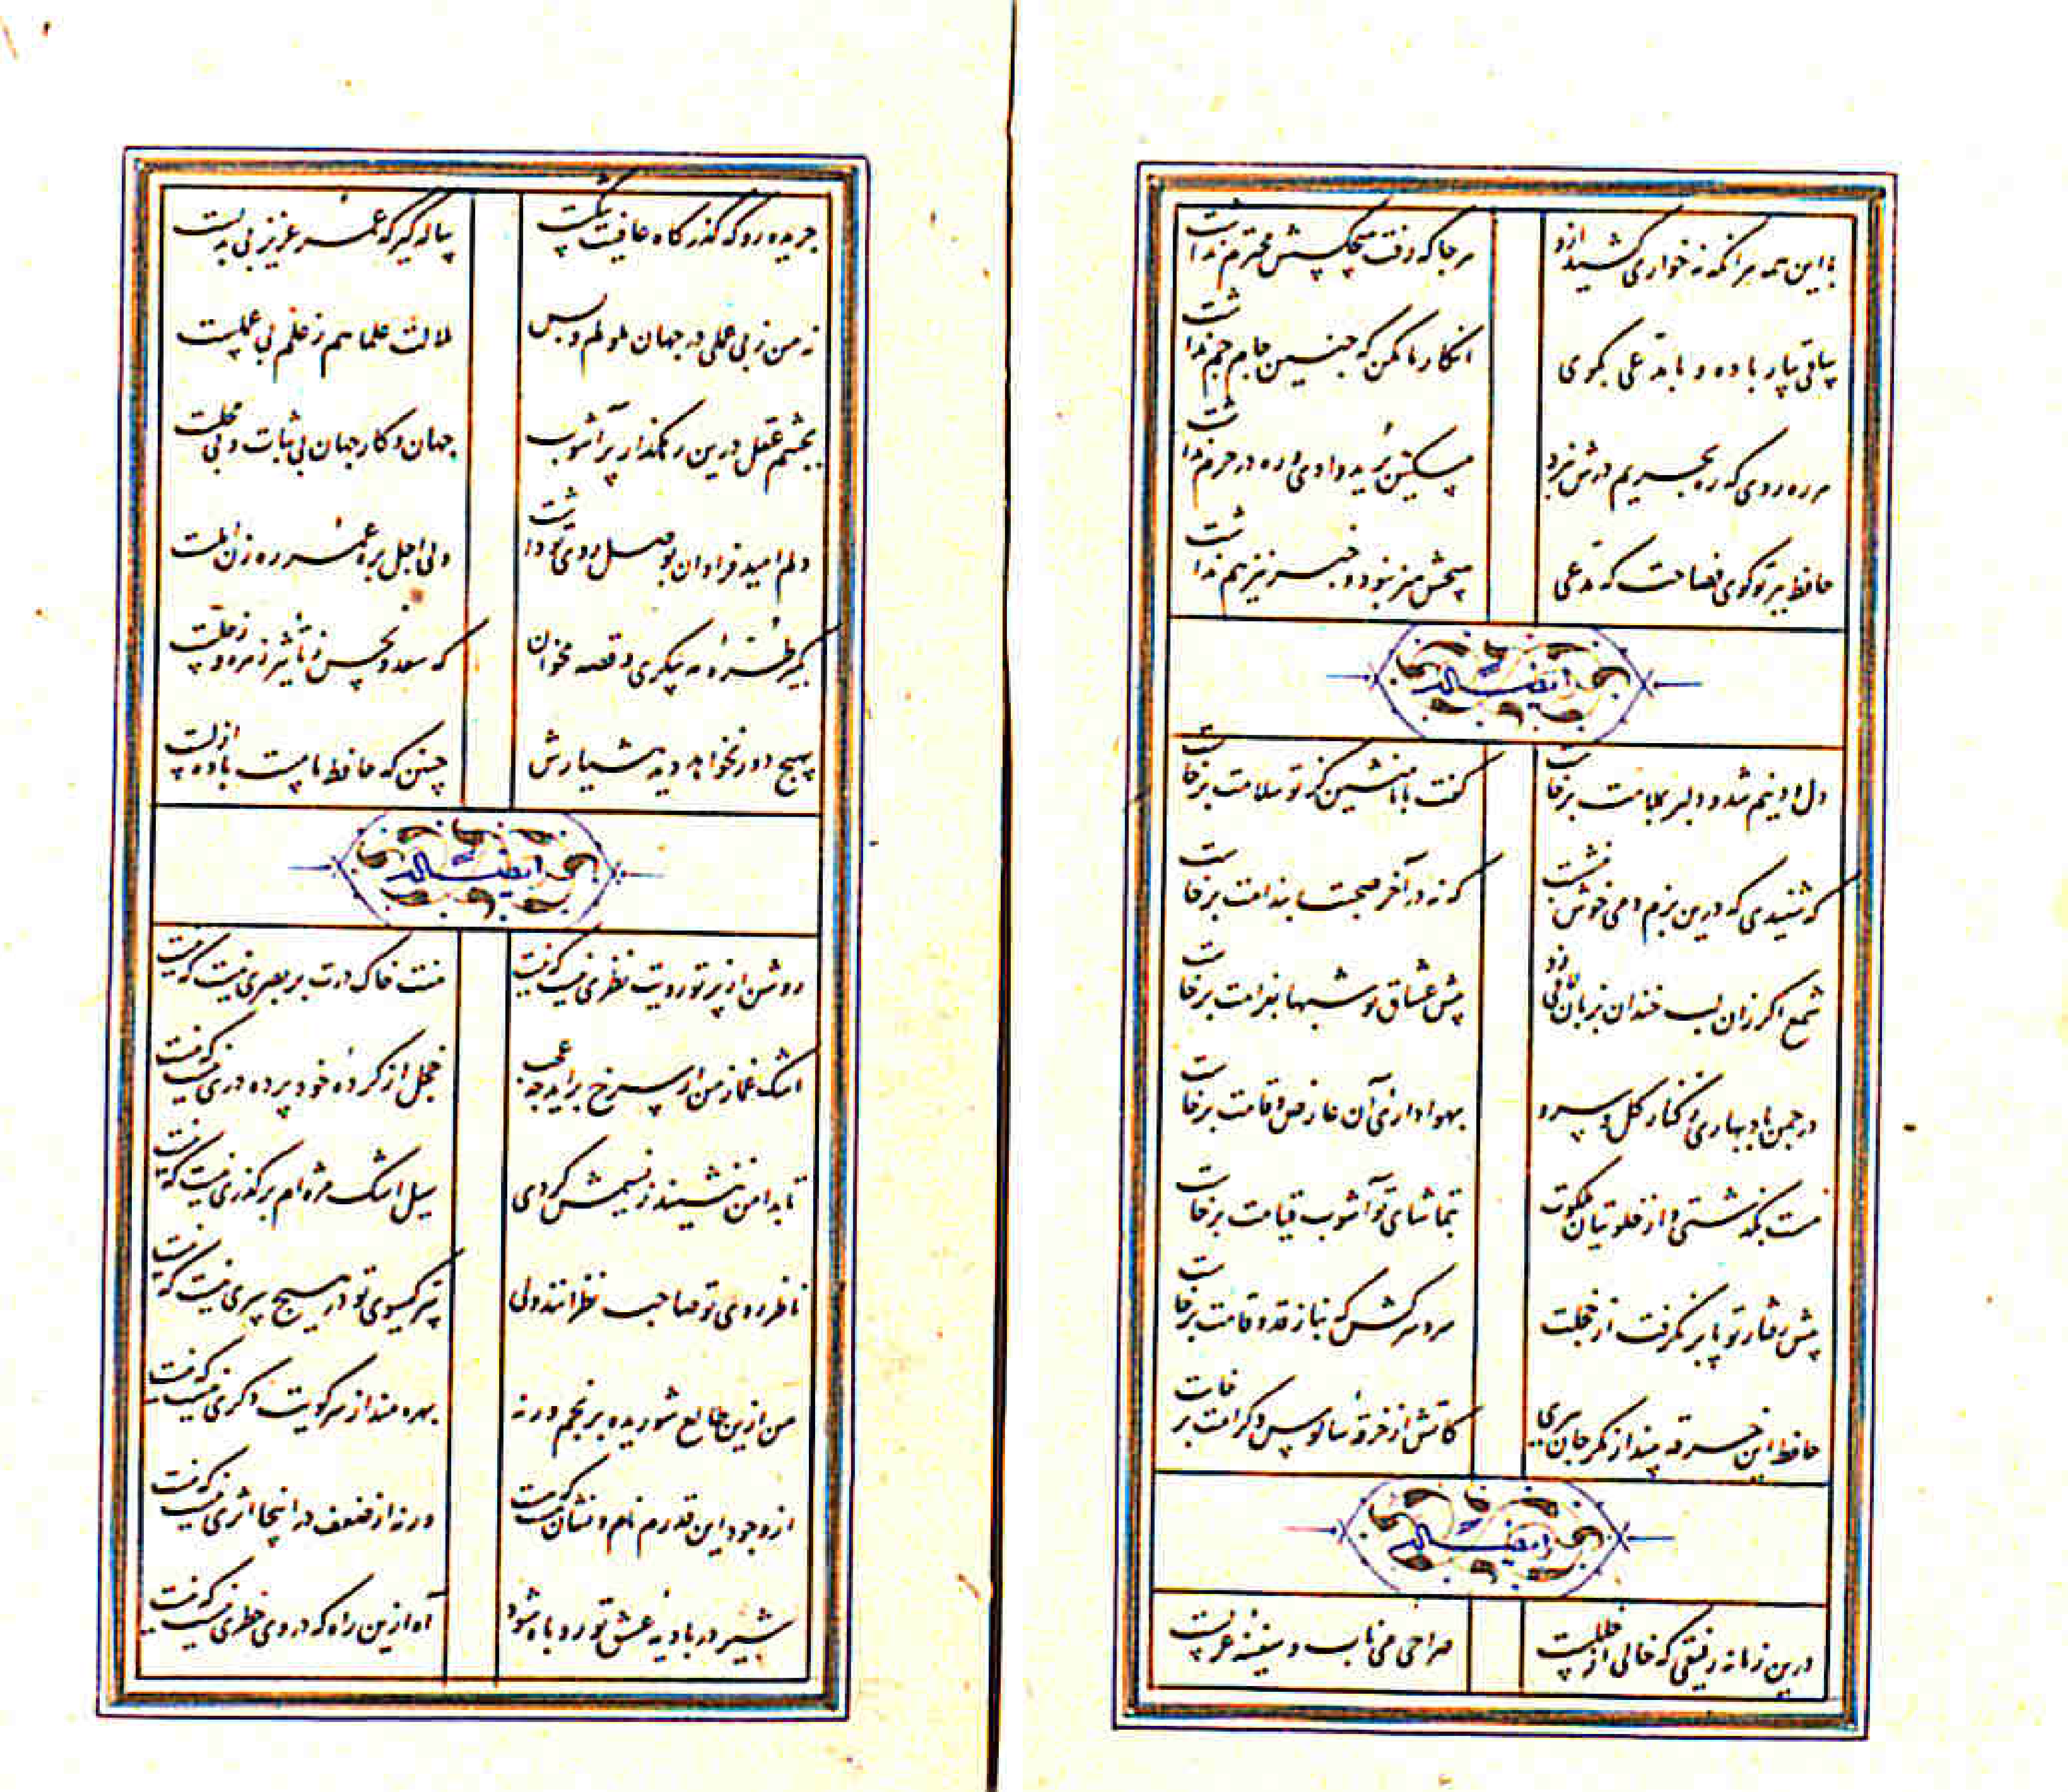 با این همه هر آنکه نه خواری کشید ازو هر جا که رفت هیچکسش محترم نداشت
ساقی بیار باده و با مدعی بگوی انکار ما مکن که چنین جام جم نداشت
هر ره روی که ره بحریم درش نبرد مسکین برید وادی و ره در حرم نداشت
حافظ ببر تو گوی فصاحت که مدعی هیچش هنر نبود و خبر نیز هم نداشت
ایضاً له
دل و دینم شد و دلبر بملامت برخاست گفت با ما منشین کز تو سلامت برخاست
که شنیدی که درین بزم دمی خوش بنشست که نه در آخر صحبت بندامت برخاست
شمع اگر زان لب خندان بزبان لافی زد پیش عشاق تو شبها بغرامت برخاست
در چمن باد بهاری ز کنار گل و سرو بهواداری آن عارض و قامت برخاست
مست بگذشتی و از خلوتیان ملکوت بتماشای تو آشوب قیامت برخاست
پیش رفتار تو پا بر نگرفت از خجلت سرو سرکش که بناز قد و قامت برخاست
حافظ این خرقه بینداز مگر جان ببری کاتش از خرقهٔ سالوس و کرامت برخاست
ایضاً له
درین زمانه رفیقی که خالی از خللست صراحی می ناب و سفینه غزلست
جریده رو که گذرگاه عافیت تنگست پیاله گیر که عمر عزیز بی بدلست
نه من ز بی عملی در جهان ملولم و بس ملالت علما هم ز علم بی عملست
بچشم عقل درین رهگذار پر آشوب جهان و کار جهان بی ثبات و بی محلست
دلم امید فراوان بوصل روی تو داشت ولی اجل بره عمر ره زن املست
بگیر طرهٔ مه پیکری و قصه مخوان که سعد و نحس ز تاثیر زهره و زحلست
بهیچ دور نخواهند دید هشیارش چنین که حافظ ما مست باده ازلست
ایضاً له
روشن از پرتو رویت نظری نیست که نیست منت خاک درت بر بصری نیست که نیست
اشک غماز من ار سرخ برآید چه عجب خجل از کردهٔ خود پرده دری نیست که نیست
تا بدامن ننشیند ز نسیمش گردی سیل اشک مژه ام بر گذری نیست که نیست
ناظر روی تو صاحب نظرانند ولی سر گیسوی تو در هیچ سری نیست که نیست
من ازین طالع شوریده برنجم ورنه بهره مند از سر کویت دگری نیست که نیست
از وجود این قدرم نام و نشان هست که هست ورنه از ضعف در اینجا اثری نیست که نیست
شیر در بادیهٔ عشق تو روباه شود آه ازین راه که در وی خطری نیست که نیست